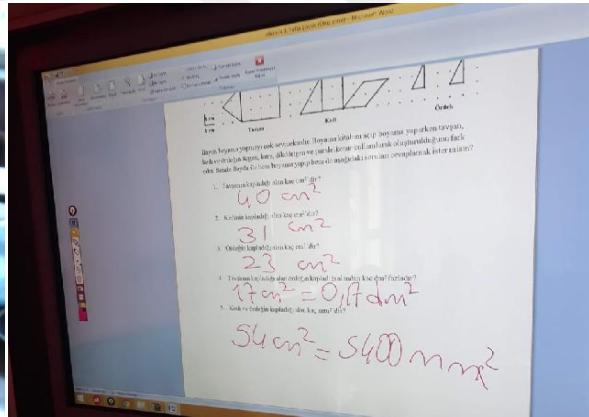 Microsoft Word
1 cm
1 cm
Tavşan
Kedi
Ördek
boyama yapmayı çok sevmektedir. Boyama kitabını açıp boyama yaparken tavşan,
kedi ve ördeğin üçgen, kare, dikdörtgen ve paralelkenar kullanılarak oluşturulduğunu fark
eder. Sende Beyda ile hem boyama yapıp hem de aşağıdaki soruları cevaplamak ister misin?
1. Tavşanın kapladığı alan kaç cm² dir?
40 cm²
2. Kedinin kapladığı alan kaç cm² dir?
31 cm²
3. Ördeğin kapladığı alan kaç cm² dir?
23 cm²
4. Tavşanın kapladığı alan ördeğin kapladığı alandan kaç dm² fazladır?
17 cm² = 0,17 dm²
5. Kedi ve ördeğin kapladığı alan kaç mm² dir?
54 cm² = 5400 mm²